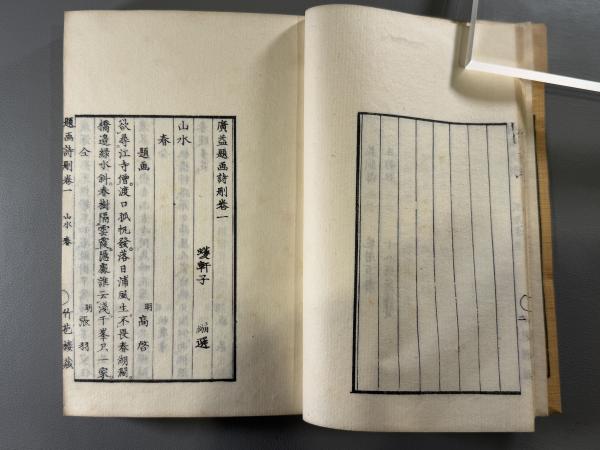 廣益題画詩刪卷一
軒子 選
山水
春
題画 明 高啓
欲尋江寺僧渡口孤帆發落日浦風生不畏春湖闊
橋邊綠水斜春樹隔雲霞隱處誰云淺千峯只一家
仝 明 張羽
題画詩刪卷一 山水 春 竹苞楼藏
二